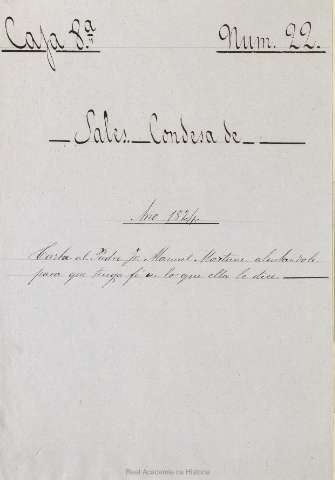 Caja 8.ª Num. 22.
Sales Condesa de
Año 1824.
Carta al Padre Fr. Manuel Martinez alentandole
para que tenga fe en lo que ella le dice
Real Academia de la Historia